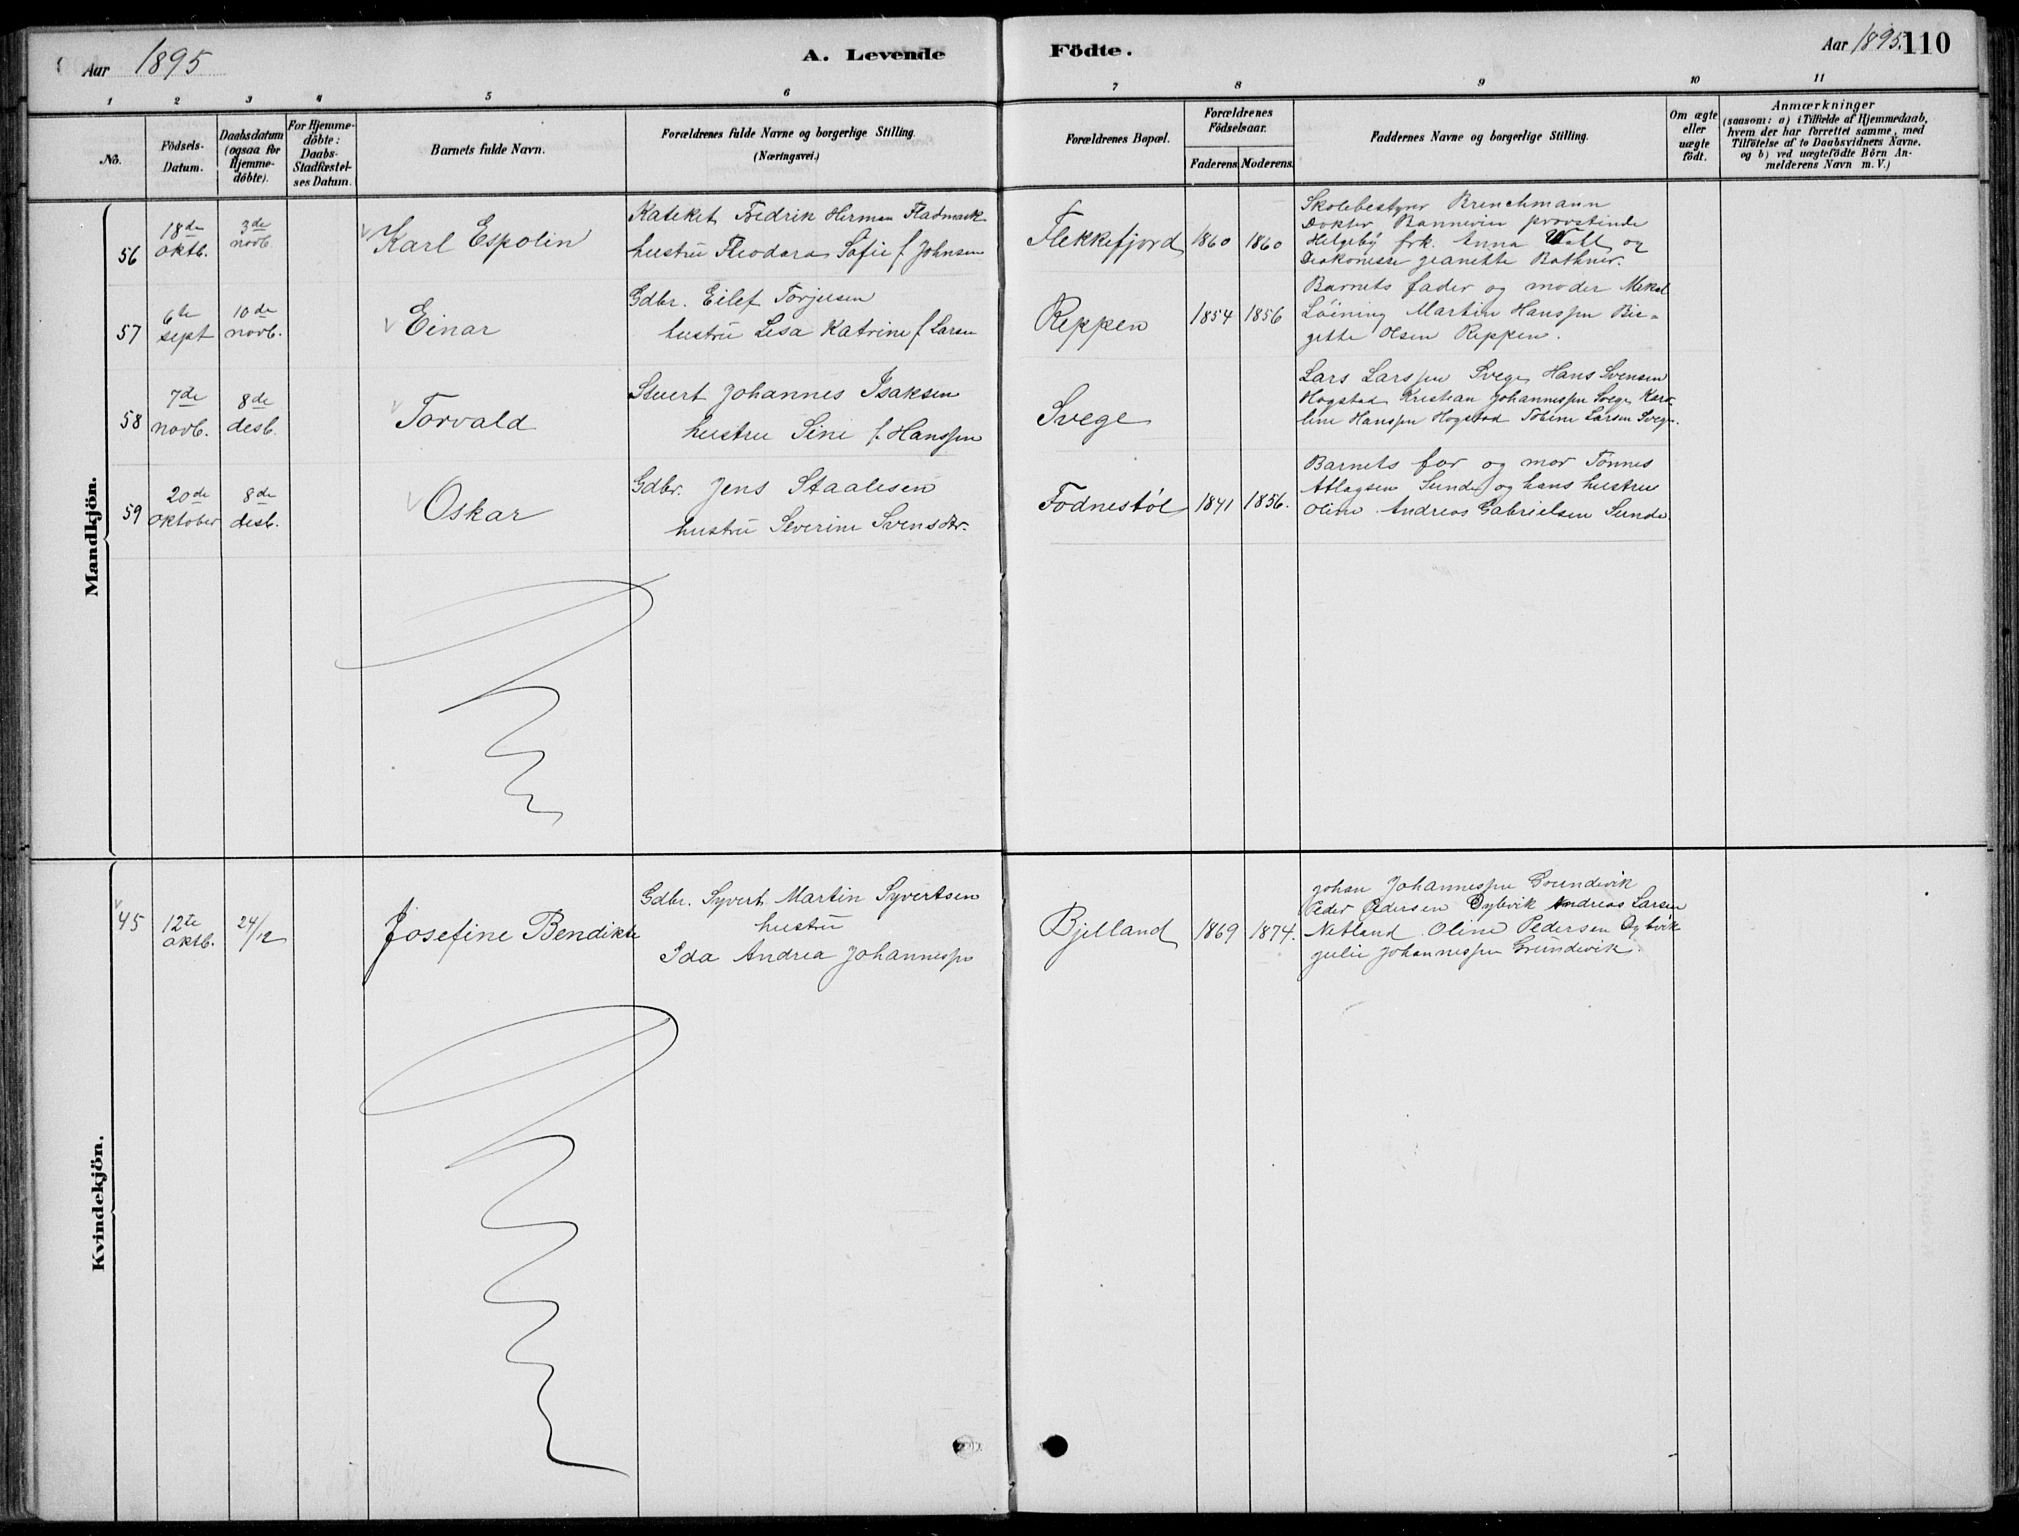 Aar 1895
A. Levende Födte.
Aar 1895. 110
1 2 3 4 5 6 7 8 9 10 11
No.
Födsels-
Datum.
Daabsdatum
(ogsaa for
Hjemme-
döbte).
For Hjemme-
döbte:
Daabs-
Stadfæstel-
ses Datum.
Barnets fulde Navn.
Forældrenes fulde Navne og borgerlige Stilling.
(Næringsvei.)
Forældrenes Bopæl.
Forældrenes
Födselsaar.
Faderens. Moderens.
Faddernes Navne og borgerlige Stilling.
Om ægte
eller
uægte
födt.
Anmærkninger
(saasom: a) i Tilfælde af Hjemmedaab,
hvem der har forrettet samme, med
Tilföielse af to Daabsvidners Navne,
og b) ved uægtefödte Börn An-
melderens Navn m. V.)
Mandkjön.
56
18de
oktb.
3de
novb.
Karl Espolin
Kateket Fredrik Herman Fladmark
hustru Theodora Sofie f. Johnsen
Flekkefjord
1860
1860
Skolebestyrer Brenchmann
Doktor Bannevin provstinde
Helgeby frk. Anna Wall og
Diakonisse Jeanette Bothner.
57
6te
sept
10de
novb.
Einar
Gdbr. Eilef Torjusen
hustru Lisa Katrine f. Larsen
Reppen
1854
1856
Barnets fader og moder Mikal
Löining Martin Hanssen Bir-
gitte Olsen Reppen.
58
7de
novb.
8de
desb.
Torvald
Stuert Johannes Isaksen
hustru Sine f. Hanssen
Svege
Lars Larssen Svege Hans Svensen
Hogstad Kristian Johannessen Svege Karo-
line Hanssen Hogstad Tobine Larsen Svege.
59
20de
oktober
8de
desb.
Oskar
Gdbr. Jens Staalesen
hustru Severine Svensdtr.
Fodnestöl
1841
1856.
Barnets far og mor Tönnes
Atlagsen Sunde og hans hustru
Oline Andreas Gabrielsen Sunde
Kvindekjön.
45
12te
oktb.
24/12
Josefine Bendikte
Gdbr. Syvert Martin Syvertsen
hustru
Ida Andrea Johannessen
Bjelland
1869
1874.
Johan Johannessen Grundevik
Peder Pedersen Dybvik Andreas Larsen
Netland Oline Pedersen Dybvik
Julie Johannessen Grundevik.